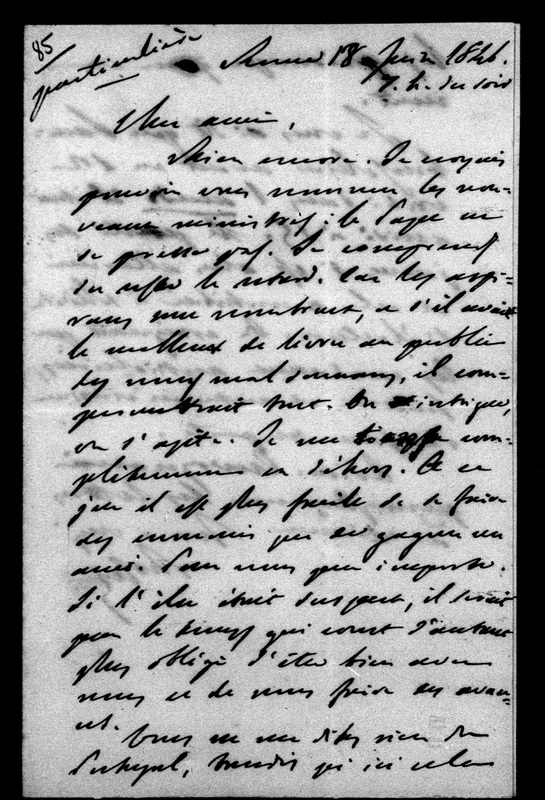 85
particulière
Rome 18 Juin 1846.
7. h. du soir
Cher ami,
Rien encore. Je croyais
pouvoir vous nommer les nou-
veaux ministres ; le Pape ne
se presse pas. Je comprends
du reste le retard. Car les aspi-
rans sont nombreux, et s'il avait
le malheur de livrer au public
les noms mal sonnans, il com-
promettrait tout. On intrigue,
on s'agite. Je me com-
plètement en dehors. Ce n'
que il est plus facile de se faire
des ennemis que de gagner un
ami. Pour nous peu importe.
Si l'élu était suspect, il serait
par le temps qui court d'autant
plus obligé d'être bien avec
nous et de nous faire des avan-
ces.
Vous ne me dites rien du
Portugal, tandis qu'ici